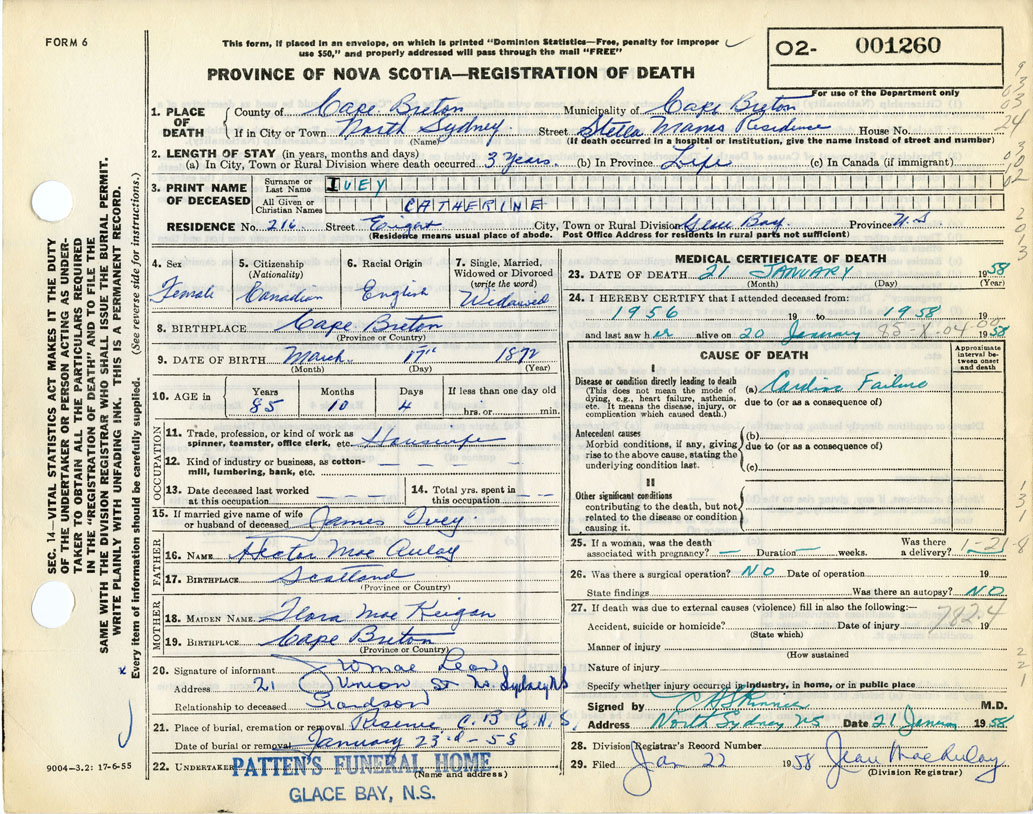 FORM 6
This form, if placed in an envelope, on which is printed "Dominion Statistics—Free, penalty for improper
use $50," and properly addressed will pass through the mail "FREE"
O2- 001260
For use of the Department only
PROVINCE OF NOVA SCOTIA—REGISTRATION OF DEATH
1. PLACE OF DEATH
County of Cape Breton Municipality of Cape Breton
If in City or Town North Sydney. Street Stella Maris Residence House No.
(Name) (If death occurred in a hospital or institution, give the name instead of street and number)
2. LENGTH OF STAY (in years, months and days)
(a) In City, Town or Rural Division where death occurred 3 Years. (b) In Province Life (c) In Canada (if immigrant)
3. PRINT NAME OF DECEASED
Surname or Last Name IVEY
All Given or Christian Names CATHERINE
RESIDENCE No. 216 Street City, Town or Rural Division Glace Bay. Province N.S
(Residence means usual place of abode. Post Office Address for residents in rural parts not sufficient)
4. Sex
Female
5. Citizenship
(Nationality)
Canadian
6. Racial Origin
English
7. Single, Married,
Widowed or Divorced
(write the word)
Widowed
8. BIRTHPLACE Cape Breton
(Province or Country)
9. DATE OF BIRTH March 17th 1872
(Month) (Day) (Year)
10. AGE in
Years Months Days If less than one day old
85 10 4 hrs. or min.
OCCUPATION
11. Trade, profession, or kind of work as
spinner, teamster, office clerk, etc. Housewife
12. Kind of industry or business, as cotton-
mill, lumbering, bank, etc.
13. Date deceased last worked
at this occupation
14. Total yrs. spent in
this occupation
15. If married give name of wife
or husband of deceased James Ivey.
FATHER
16. NAME Hector Mac Aulay
17. BIRTHPLACE Scotland
(Province or Country)
MOTHER
18. MAIDEN NAME Flora Mac Keigan
19. BIRTHPLACE Cape Breton
(Province or Country)
20. Signature of informant J W Mac Lean
Address 21 Union St No. Sydney NS
Relationship to deceased Grandson
21. Place of burial, cremation or removal Reserve C.B Co N.S.
Date of burial or removal January 23rd - 58
22. UNDERTAKER PATTEN'S FUNERAL HOME
(Name and address)
GLACE BAY, N.S.
9004—3.2: 17-6-55
SEC. 14—VITAL STATISTICS ACT MAKES IT THE DUTY
OF THE UNDERTAKER OR PERSON ACTING AS UNDER-
TAKER TO OBTAIN ALL THE PARTICULARS REQUIRED
IN THE "REGISTRATION OF DEATH" AND TO FILE THE
SAME WITH THE DIVISION REGISTRAR WHO SHALL ISSUE THE BURIAL PERMIT.
WRITE PLAINLY WITH UNFADING INK. THIS IS A PERMANENT RECORD.
Every item of information should be carefully supplied. (See reverse side for instructions.)
MEDICAL CERTIFICATE OF DEATH
23. DATE OF DEATH 21 JANUARY 1958
(Month) (Day) (Year)
24. I HEREBY CERTIFY that I attended deceased from:
1956 19 to 1958 19
and last saw h er alive on 20 January 1958
CAUSE OF DEATH
Approximate
interval be-
tween onset
and death
I
Disease or condition directly leading to death
(This does not mean the mode of
dying, e.g., heart failure, asthenia,
etc. It means the disease, injury, or
complication which caused death.)
(a) Cardiac Failure
due to (or as a consequence of)
Antecedent causes
Morbid conditions, if any, giving
rise to the above cause, stating the
underlying condition last.
(b)
due to (or as a consequence of)
(c)
II
Other significant conditions
contributing to the death, but not
related to the disease or condition
causing it.
25. If a woman, was the death
associated with pregnancy? — Duration — weeks. Was there
a delivery? 1-21-8
26. Was there a surgical operation? NO Date of operation 19
State findings Was there an autopsy? NO
27. If death was due to external causes (violence) fill in also the following:—
782.4
Accident, suicide or homicide? Date of injury 19
(State which)
Manner of injury
(How sustained
Nature of injury
Specify whether injury occurred in industry, in home, or in public place
Signed by Skinner M.D.
Address North Sydney NS Date 21 January 1958
28. Division Registrar's Record Number
29. Filed Jan 22 1958 Jean MacAulay
(Division Registrar)